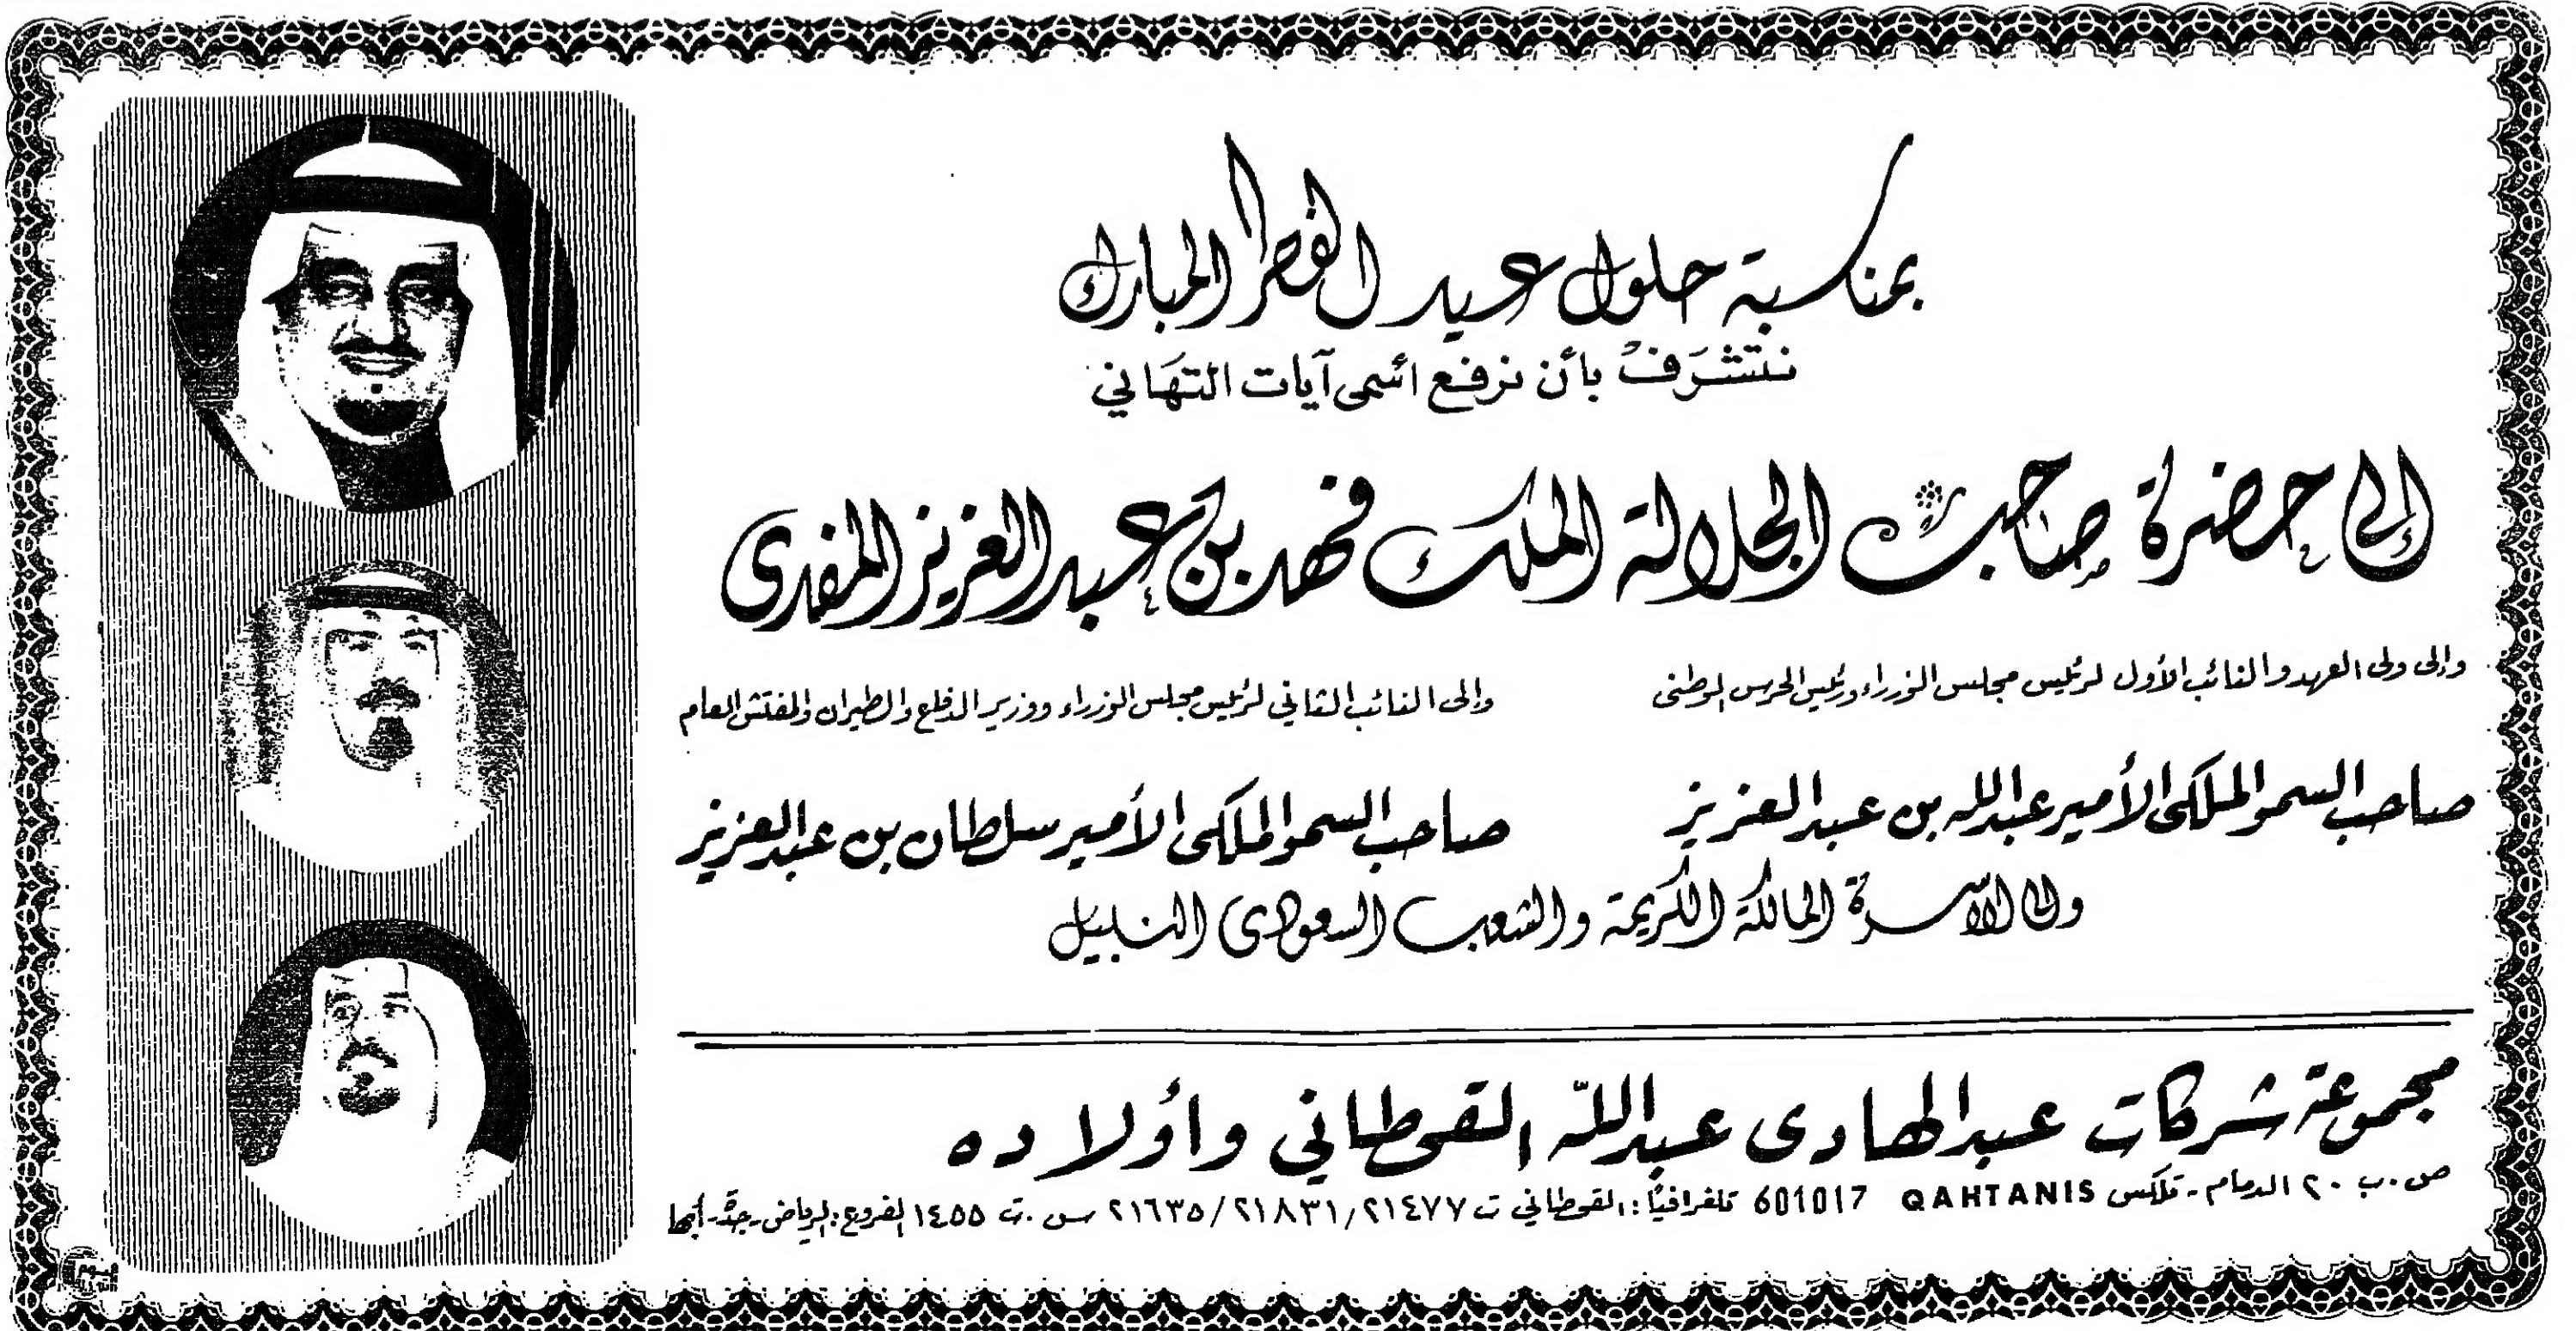 بمناسبة حلول عيد الفطر المبارك
نتشرف بأن نرفع اسمى آيات التهاني
إلى حضرة صاحب الجلالة الملك فهد بن عبد العزيز المفدى
وإلى ولى العهد والنائب الأول لرئيس مجلس الوزراء ورئيس الحرس الوطنى
صاحب السمو الملكى الأمير عبدالله بن عبد العزيز
وإلى النائب الثاني لرئيس مجلس الوزراء ووزير الدفاع والطيران والمفتش العام
صاحب السمو الملكى الأمير سلطان بن عبد العزيز
وإلى الأسرة المالكة الكريمة والشعب السعودى النبيل
مجموعة شركات عبد الهادى عبد الله القحطاني وأولاده
ص.ب ٢٠ الدمام - تلكس QAHTANIS 601017 تلغرافيًا: القحطاني ت ٢١٤٧٧/٢١٨٣١/٢١٦٣٥ س.ت ١٤٥٥ الفروع: الرياض - جدة - أبها